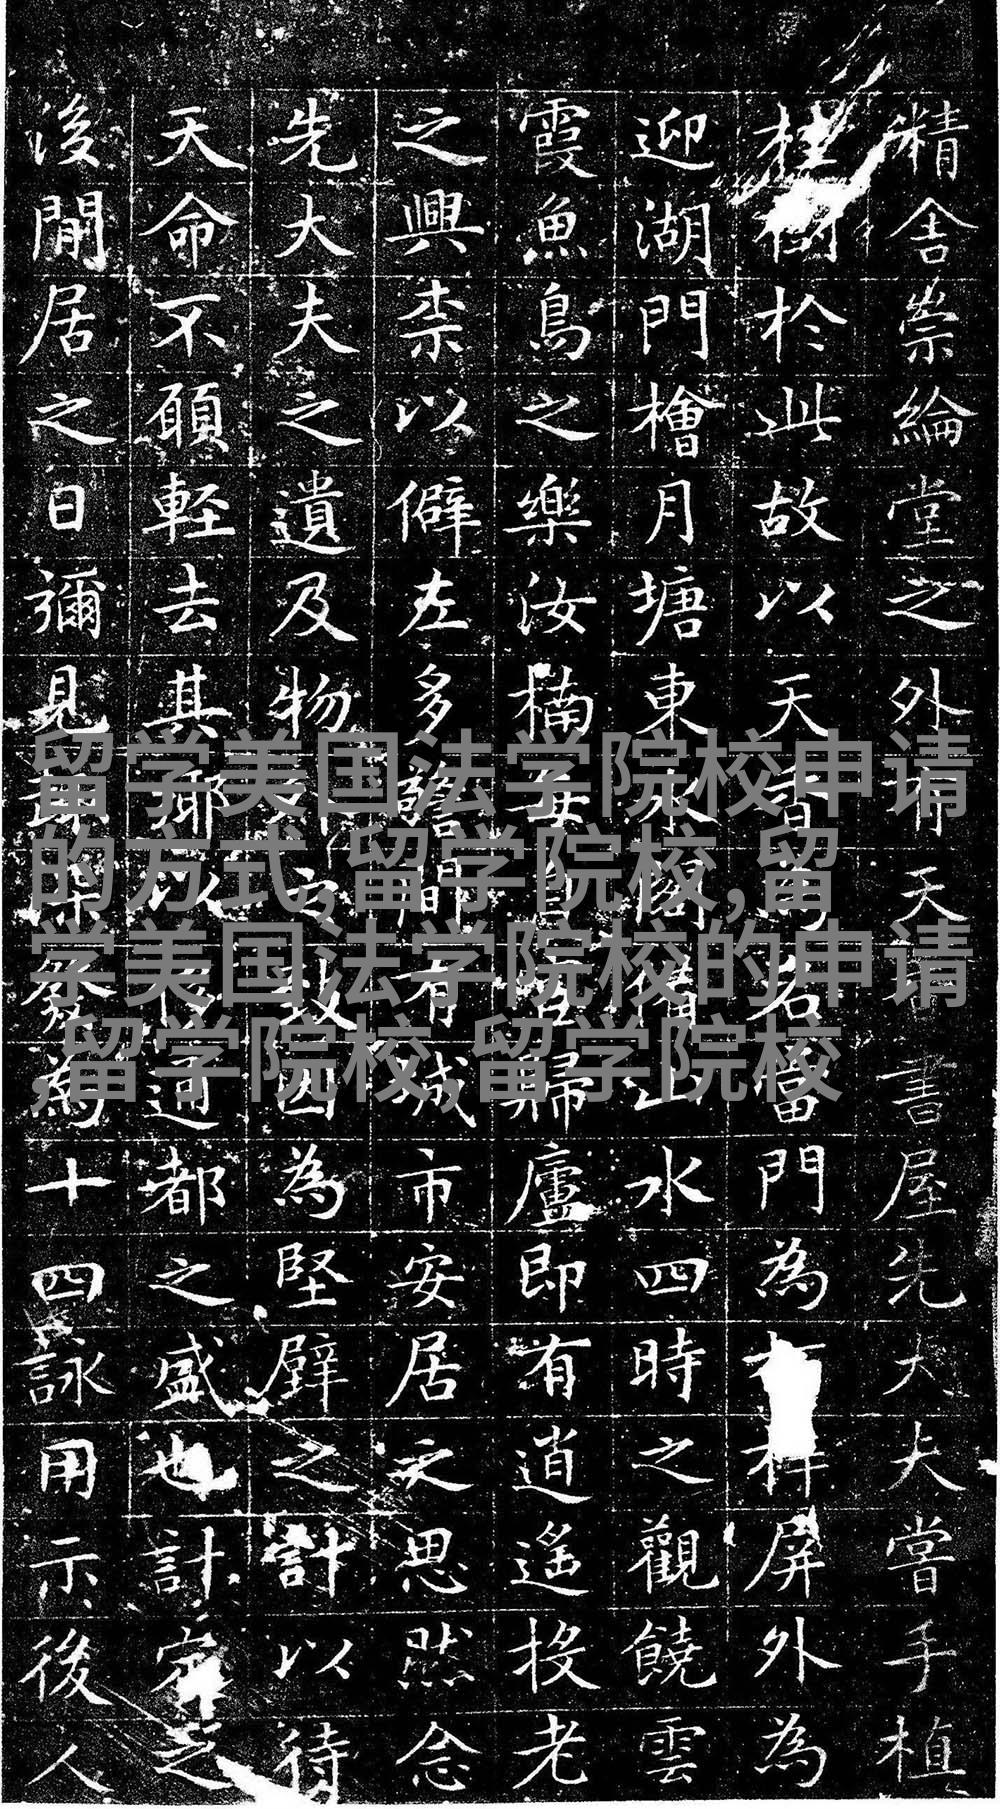 精舍崇綸堂之外有天書屋先大夫嘗手植
桂樹於此故以天香名當門為屏外為
迎湖門檜月塘東水閣山水四時之觀饒雲
霞魚鳥之樂汝楠每自歸廬即有逍遙投老
之興柰以僻左多間有城市安居之思然念
先大夫之遺及物致因為堅壁之計以待
天命不願輕去其鄉以通都之盛也計定之
後閒居之日彌見為十四詠用示後人
留学美国法学院校申请
的方式,留学院校,留
学美国法学院校的申请
,留学院校,留学院校